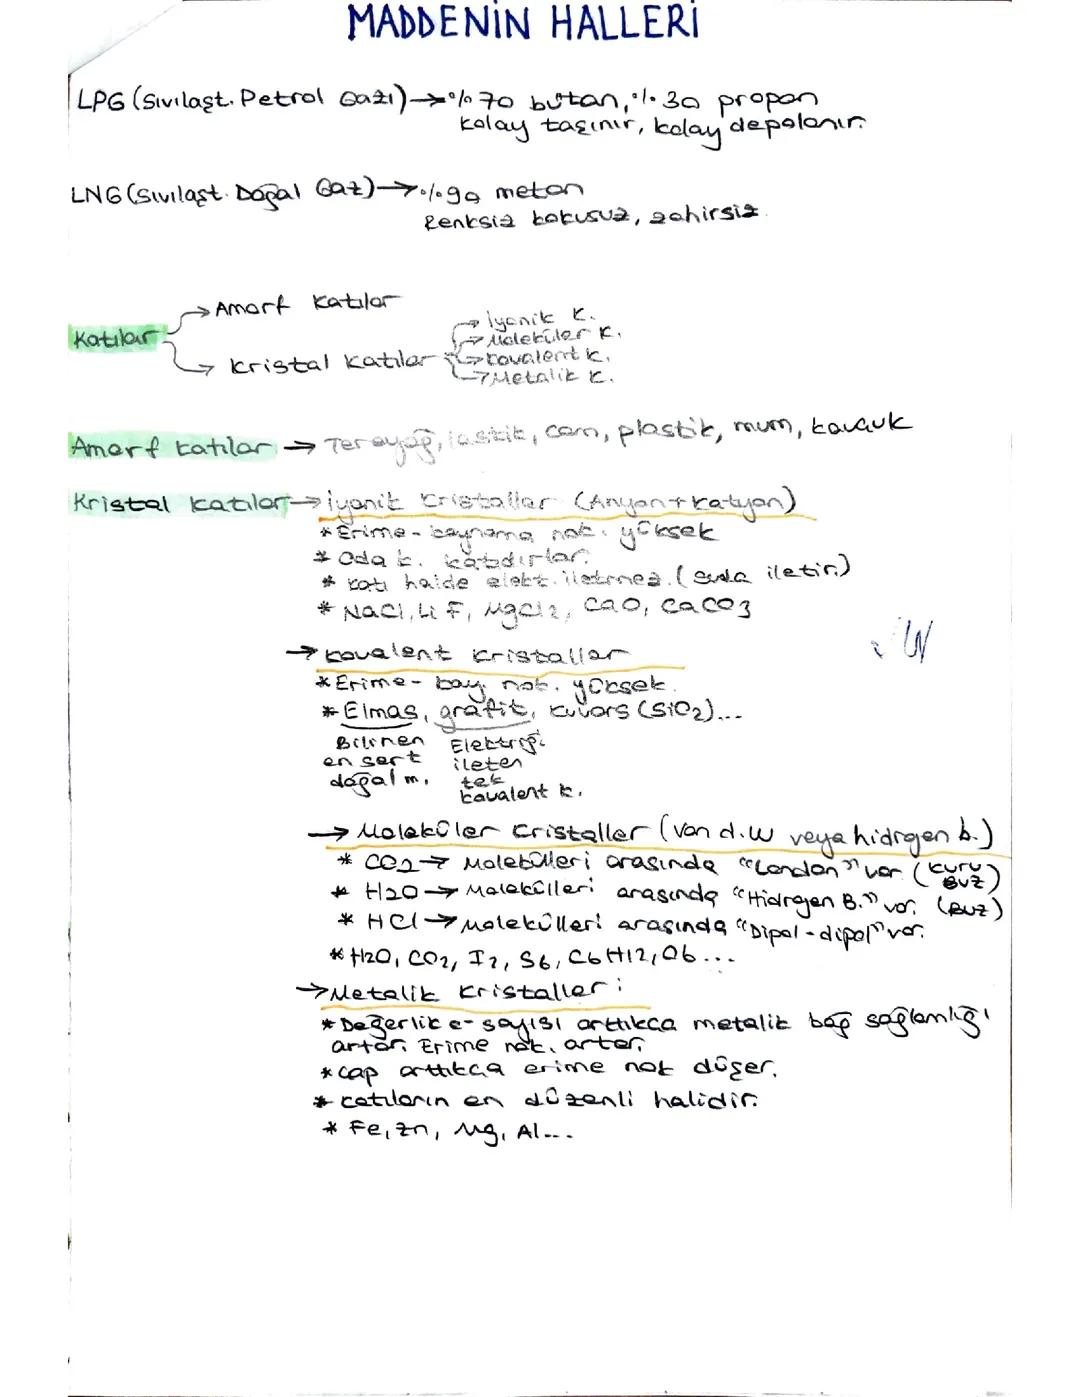 MADDENİN HALLERİ
LPG (Sıvılaşt. Petrol Gazı)→%70 bütan, %30 propan
kolay taşınır, kolay depolanır.
LNG (Sıvılaşt. Doğal Gaz)→%90 metan
Renksiz kokusuz, zehirsiz.
Katılar
→Amorf Katılar
→ Kristal Katılar
→ İyonik K.
→ Moleküler K.
→ Kovalent K.
→ Metalik K.
Amorf Katılar → Tereyağ, lastik, cam, plastik, mum, kauçuk
Kristal Katılar→ İyonik Kristaller (Anyon+Katyon)
* Erime-kaynama nok. yüksek
* Oda k. katıdırlar.
* Katı halde elekt. iletmez. (Suda iletir.)
* NaCl, LiF, MgCl2, CaO, CaCO3
→ Kovalent Kristaller
* Erime- kay. nok. yüksek.
* Elmas, grafit, kuvars (SiO2)...
Bilinen en sert doğal m.
Elektriği ileten tek kovalent k.
→ Moleküler Kristaller (Van d.W veya hidrojen b.)
* CO2→ Molekülleri arasında "London" var (Kuru Buz)
* H2O→ Molekülleri arasında "Hidrojen B." var. (Buz)
* HCl→ Molekülleri arasında "Dipol-dipol" var.
* H2O, CO2, I2, S6, C6H12, O6...
→Metalik Kristaller:
* Değerlik e- sayısı arttıkça metalik bağ sağlamlığı
artar. Erime nok. artar.
* Çap arttıkça erime nok düşer.
* Katıların en düzenli halidir.
* Fe, Zn, Mg, Al...